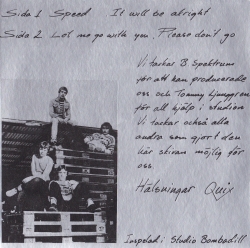 Sida 1 Speed It will be alright
Sida 2 Let me go with you, Please don't go
Vi tackar B. Spektrum
för att han producerade
oss och Tommy Ljunggren
för all hjälp i studion
Vi tackar också alla
andra som gjort den
här skivan möjlig för
oss
Hälsningar Quix
Inspelad i Studio Bombadill